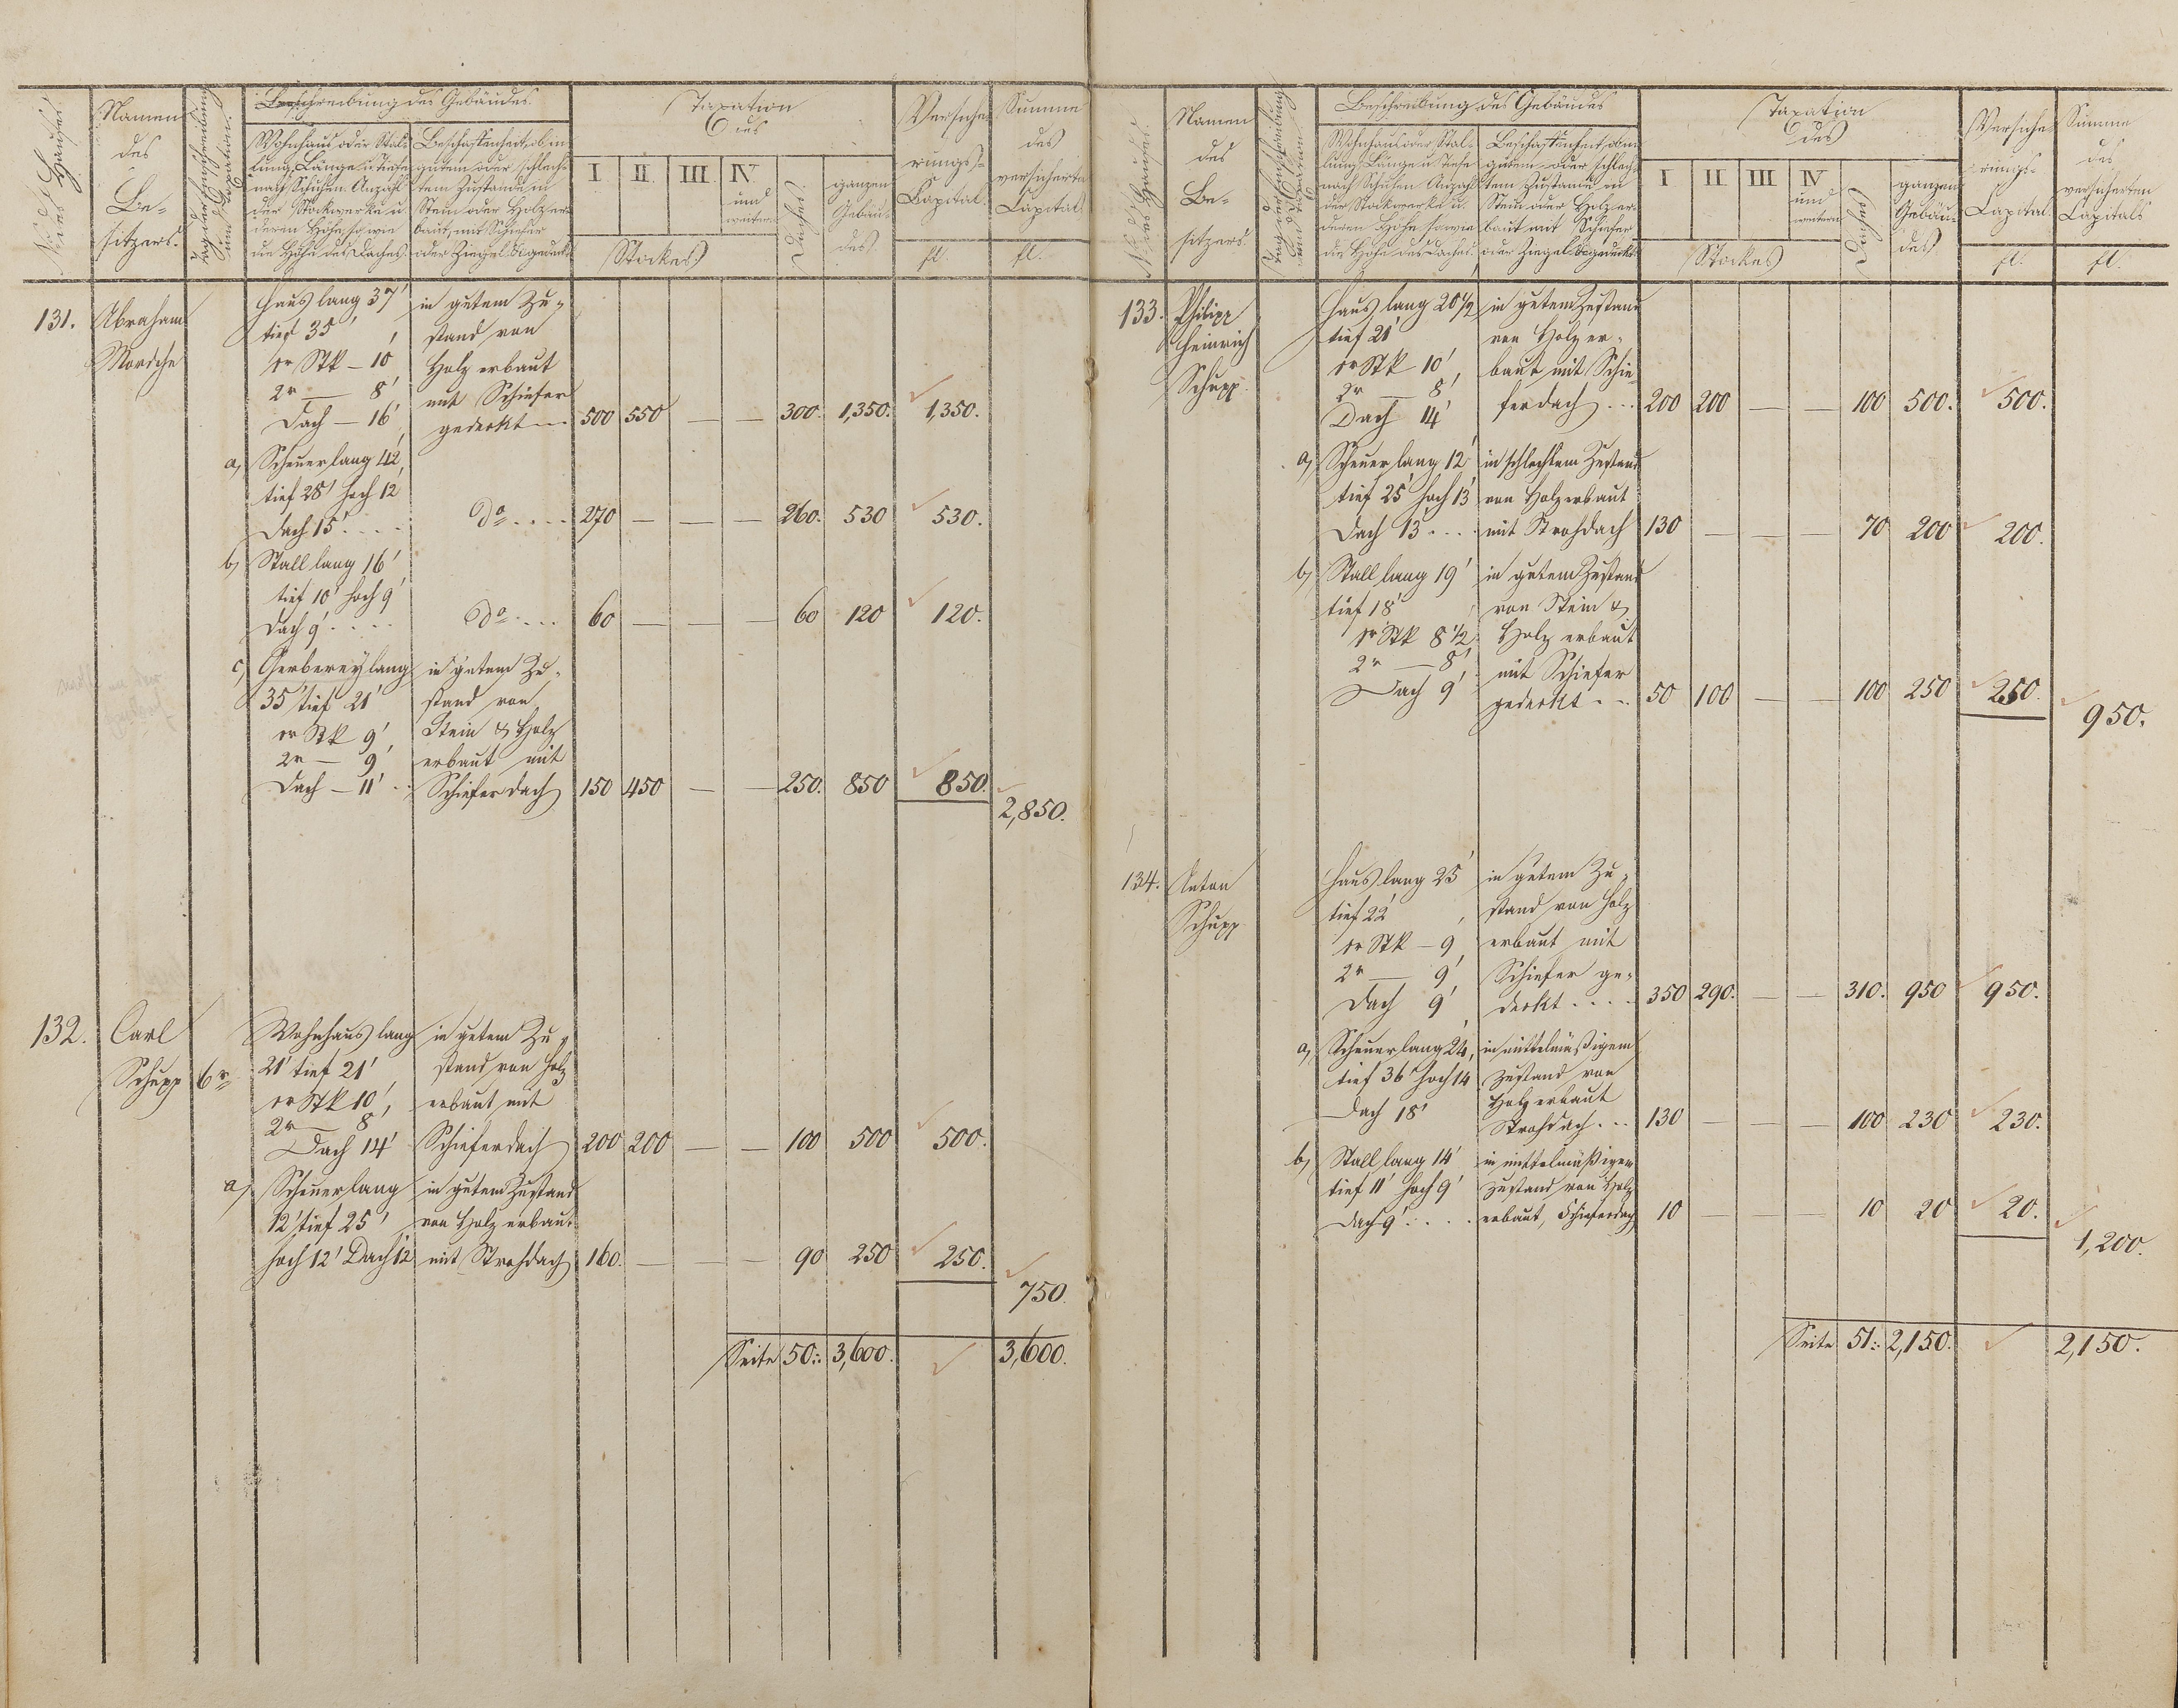 Nr. des Hauses
Namen
des
Be-
sitzers.
Tag der Einschreibung
und Taxation.
Beschreibung des Gebäudes.
Wohnhaus oder Stal-
lung, Länge u Tiefe
nach Schuhen. Anzahl
der Stockwerke u.
deren Höhe, so wie
die Höhe des Daches.
Beschaffenheit, ob in
gutem oder schlech-
tem Zustande, in
Stein oder Holz er-
baut, mit Schiefer
oder Ziegel & gedeckt
Taxation
des
I II. III IV
und
weitern
Stockes
Daches.
ganzen
Gebäu-
des.
Versiche-
rungs-
Capital.
fl.
Summe
des
versicherten
Capitals
fl.
131. Abraham
Mordche
Haus lang 37'
tief 35'
1r Stk – 10'
2r — 8'
Dach – 16'
in gutem Zu-
stand von
Holz erbaut
mit Schiefer
gedeckt 500 550 — — 300. 1,350. 1,350.
a, Scheuer lang 42'
tief 28' hoch 12
Dach 15' . . . . do . . . . 270 — — — 260. 530 530.
b, Stall lang 16'
tief 10' hoch 9'
Dach 9' . . . . do . . . . 60 — — — 60 120 120.
c, Gerberey lang
35' tief 21'
1r Stk 9'
2r — 9'
Dach – 11'
in gutem Zu-
stand von
Stein & Holz
erbaut mit
Schieferdach 150 450 — — 250. 850 850.
2,850.
132. Carl
Schupp 6r
Wohnhaus lang
21' tief 21'
1r Stk 10'
2r — 8
Dach 14'
in gutem Zu-
stand von Holz
erbaut mit
Schieferdach 200 200 — — 100 500 500.
a, Scheuer lang
12' tief 25'
hoch 12' Dach 12
in gutem Zustand
von Holz erbaut
mit Strohdach 160. — — — 90 250 250.
750.
Seite 50: 3,600. 3,600.
Nr. des Hauses.
Namen
des
Be-
sitzers.
Tag der Einschreibung
und Taxation
Beschreibung des Gebäudes
Wohnhaus oder Stal-
lung, Länge u Tiefe
nach Schuhen Anzahl
der Stockwerke u.
deren Höhe so wie
die Höhe des Daches.
Beschaffenheit, ob in
gutem oder schlech-
tem Zustande in
Stein oder Holz er-
baut mit Schiefer
oder Ziegel & gedeckt
Taxation
des
I II III IV
und
weitern
Stockes
Daches
ganzen
Gebäu-
des
Versiche-
rungs-
Capital.
fl.
Summe
des
versicherten
Capitals
fl.
133. Philipp
Heinrich
Schupp
Haus lang 20 1/2
tief 21'
1r Stk 10'
2r — 8'
Dach 14'
in gutem Zustand
von Holz er-
baut mit Schie-
ferdach . . . 200 200 — — 100 500. 500.
a, Scheuer lang 12'
tief 25' hoch 13'
Dach 13 . . . .
in schlechtem Zustand
von Holz erbaut
mit Strohdach 130 — — — 70 200 200.
b, Stall lang 19'
tief 18'
1r Stk 8 1/2
2r — 8'
Dach 9'
in gutem Zustand
von Stein &
Holz erbaut
mit Schiefer
gedeckt . . 50 100 — — 100 250 250.
950.
134. Anton
Schupp
Haus lang 25'
tief 22'
1r Stk – 9'
2r — 9'
Dach 9'
in gutem Zu-
stand von Holz
erbaut mit
Schiefer ge-
deckt . . . . 350 290. — — 310. 950 950.
a, Scheuer lang 24,
tief 36' hoch 14
Dach 18'
in mittelmäßigem
Zustand von
Holz erbaut
Strohdach . . . 130 — — — 100 230 230.
b, Stall lang 14'
tief 11' hoch 9'
Dach 9' . . . .
in mittelmäßigem
Zustand von Holz
erbaut, Schieferdach 10 — — — 10 20 20.
1,200.
Seite 51: 2,150. 2,150.